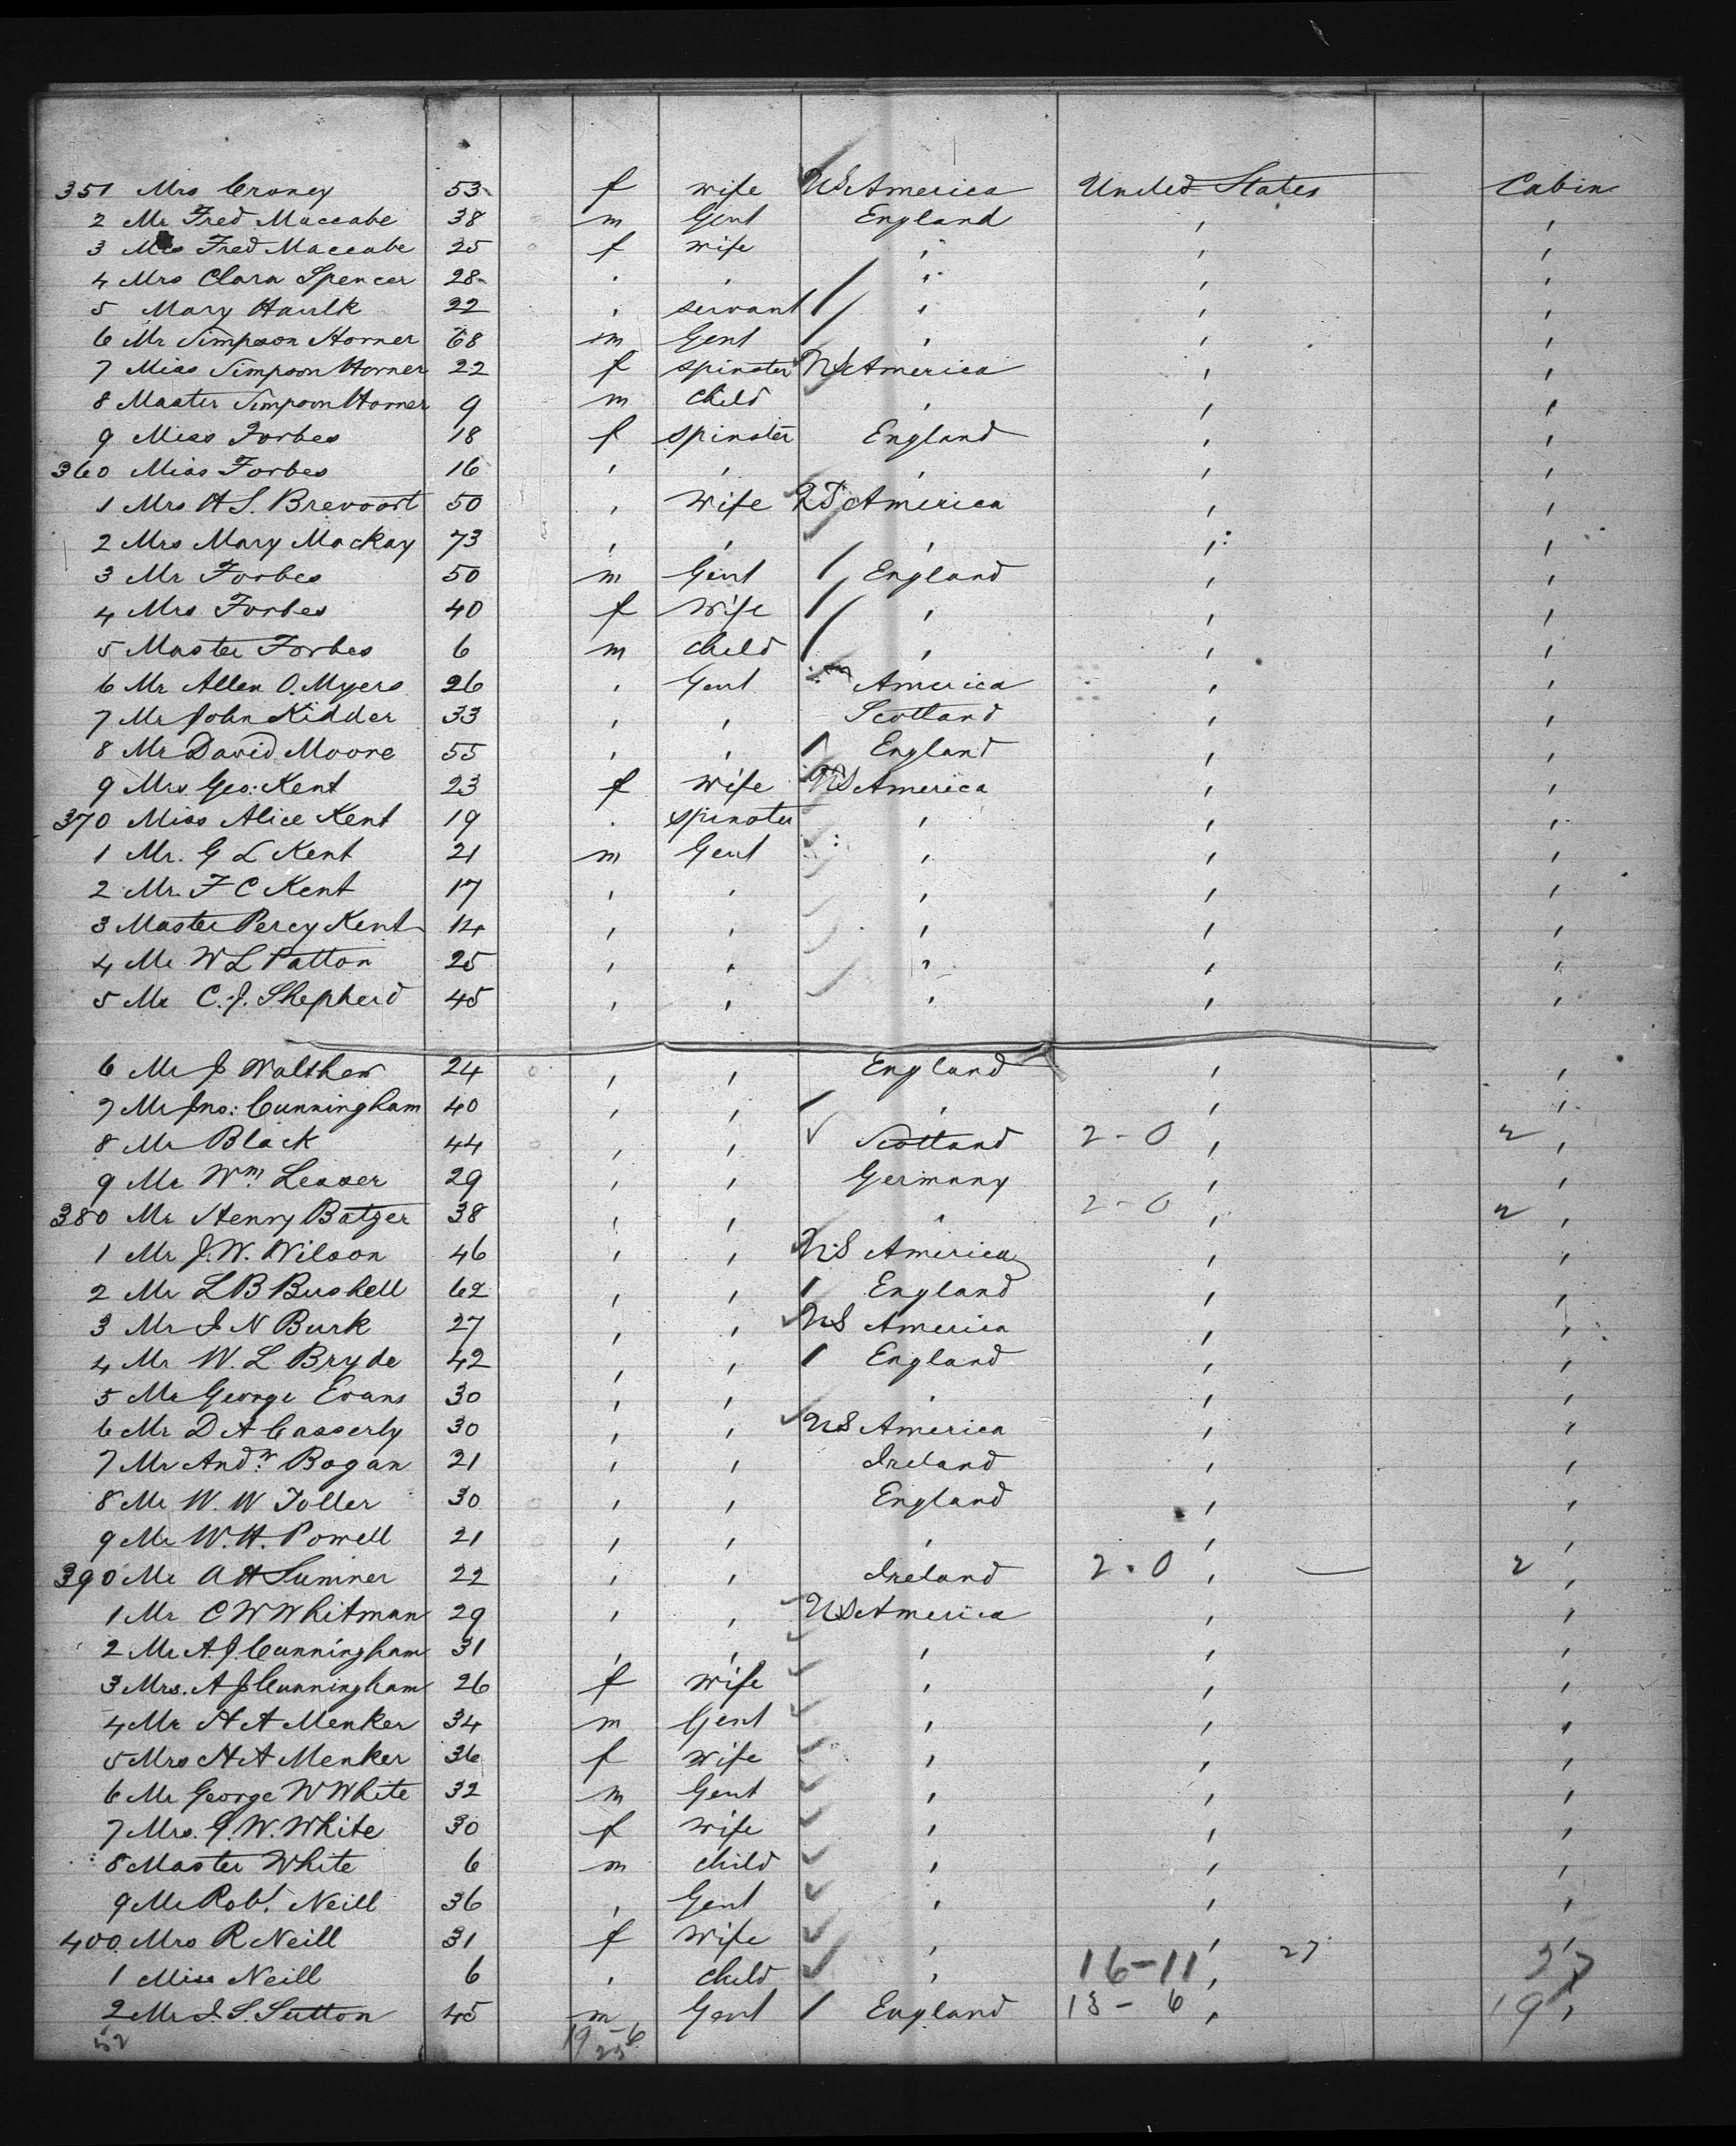 351 Mrs Croney 53 f wife US America United States Cabin
2 Mr Fred Maccabe 38 m Gent England , ,
3 Mrs Fred Maccabe 25 f wife , , ,
4 Mrs Clara Spencer 28 , , , , ,
5 Mary Haulk 22 , servant , , ,
6 Mr Simpson Horner 68 m Gent , , ,
7 Miss Simpson Horner 22 f spinster US America , ,
8 Master Simpson Horner 9 m child , , ,
9 Miss Forbes 18 f spinster England , ,
360 Miss Forbes 16 , , , , ,
1 Mrs H S. Brevoort 50 , wife US America , ,
2 Mrs Mary Mackay 73 , , , , ,
3 Mr Forbes 50 m Gent England , ,
4 Mrs Forbes 40 f wife , , ,
5 Master Forbes 6 m child , , ,
6 Mr Allen O. Myers 26 , Gent America , ,
7 Mr John Kidder 33 , , Scotland , ,
8 Mr David Moore 55 , , England , ,
9 Mrs Geo: Kent 23 f wife US America , ,
370 Miss Alice Kent 19 , spinster , , ,
1 Mr. G L Kent 21 m Gent , , ,
2 Mr. F C Kent 17 , , , , ,
3 Master Percy Kent 14 , , , , ,
4 Mr W L Patton 25 , , , , ,
5 Mr C. J. Shepherd 45 , , , , ,
6 Mr J Walthew 24 , , England , ,
7 Mr Jno: Cunningham 40 , , , , ,
8 Mr Black 44 , , Scotland 2-0 , 2 ,
9 Mr Wm. Lesser 29 , , Germany , ,
380 Mr Henry Batzer 38 , , , 2-0 , 2 ,
1 Mr J. W. Wilson 46 , , US America , ,
2 Mr L B Bushell 62 , , England , ,
3 Mr J N Burk 27 , , US America , ,
4 Mr W. L Bryde 42 , , England , ,
5 Mr George Evans 30 , , , , ,
6 Mr D A Casserly 30 , , US America , ,
7 Mr Andw. Bogan 21 , , Ireland , ,
8 Mr W. W Toller 30 , , England , ,
9 Mr W. H. Powell 21 , , , , ,
390 Mr A H Sumner 22 , , Ireland 2-0 , 2 ,
1 Mr C W Whitman 29 , , US America , ,
2 Mr A. J. Cunningham 31 , , , , ,
3 Mrs. A J Cunningham 26 f wife , , ,
4 Mr H A Menker 34 m Gent , , ,
5 Mrs H A Menker 36 f wife , , ,
6 Mr George W White 32 m Gent , , ,
7 Mrs. G. W. White 30 f wife , , ,
8 Master White 6 m child , , ,
9 Mr Robt. Neill 36 , Gent , , ,
400 Mrs R Neill 31 f wife , , 27 ,
1 Miss Neill 6 , child , 16-11 , 27
2 Mr J. S. Sutton 45 m Gent England 13-6 , 19 ,
52 19-6
25